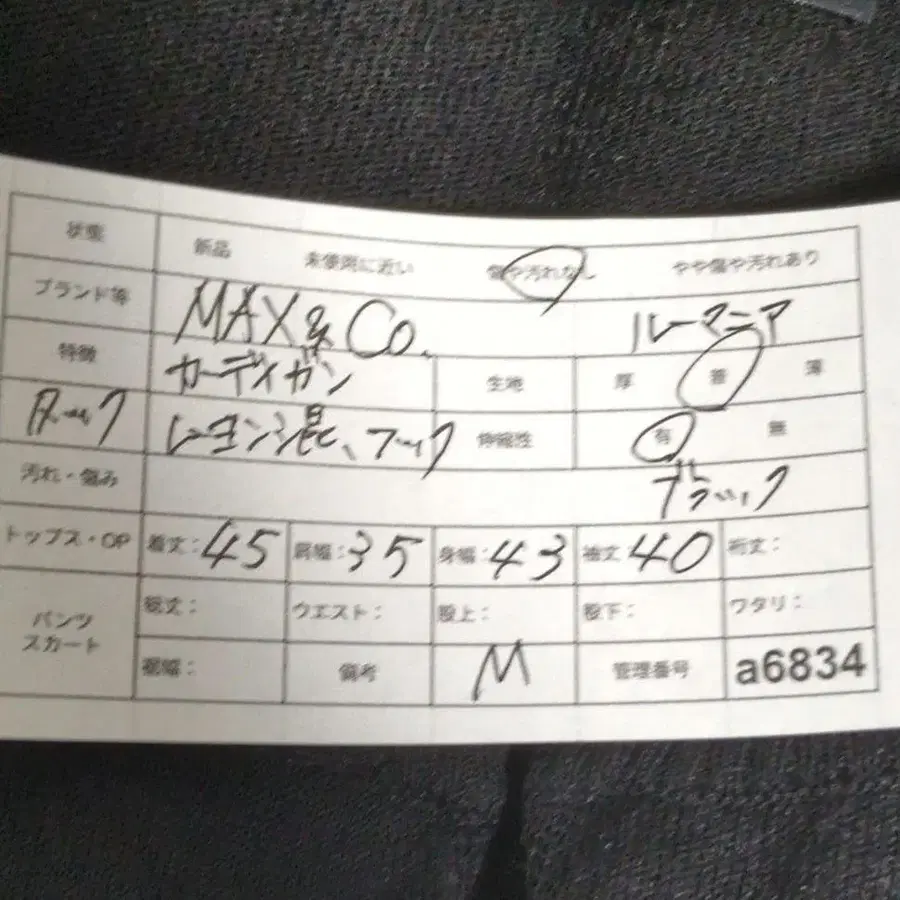 状態 新品 未使用に近い 傷や汚れなし やや傷や汚れあり
ブランド等 MAX&Co. ルーマニア
特徴 カーディガン 生地 厚 普 薄
タック レーヨン混、フック 伸縮性 有 無
汚れ・傷み ブラック
トップス・OP 着丈:45 肩幅:35 身幅:43 袖丈:40 裄丈:
パンツ スカート 総丈: ウエスト: 股上: 股下: ワタリ:
裾幅: 備考 M 管理番号 a6834